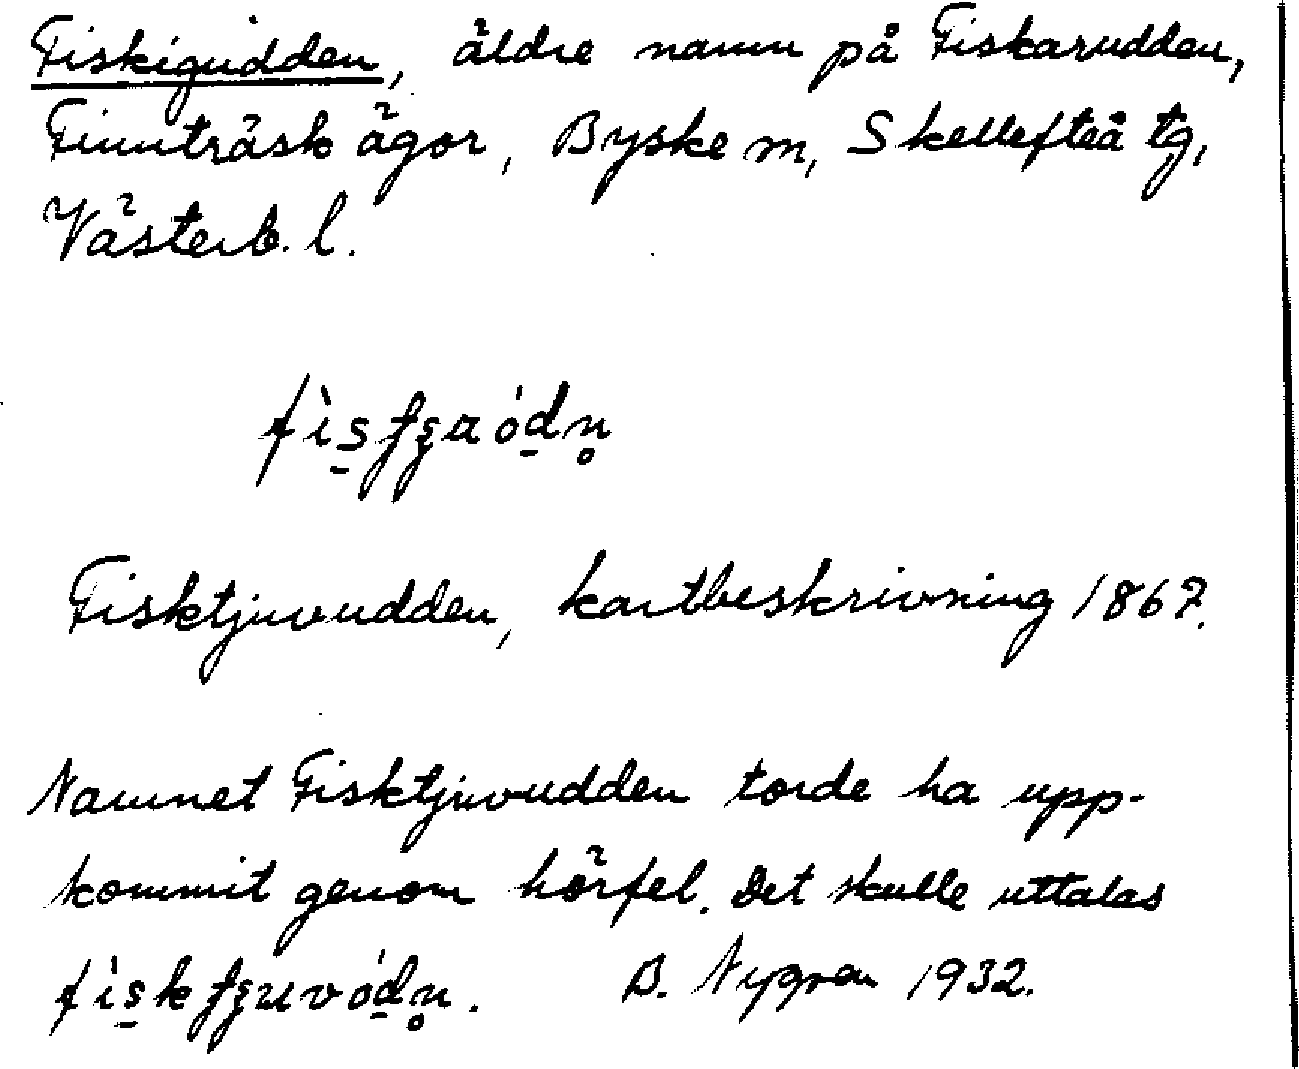 Fiskigudden, äldre namn på Fiskarudden,
Finnträsk ägor, Byske m, Skellefteå tg,
Västerb. l.
Fisktjuvudden, kartbeskrivning 1867.
Namnet Fisktjuvudden torde ha upp-
kommit genom hörfel. Det skulle uttalas
B. Nygren 1932.